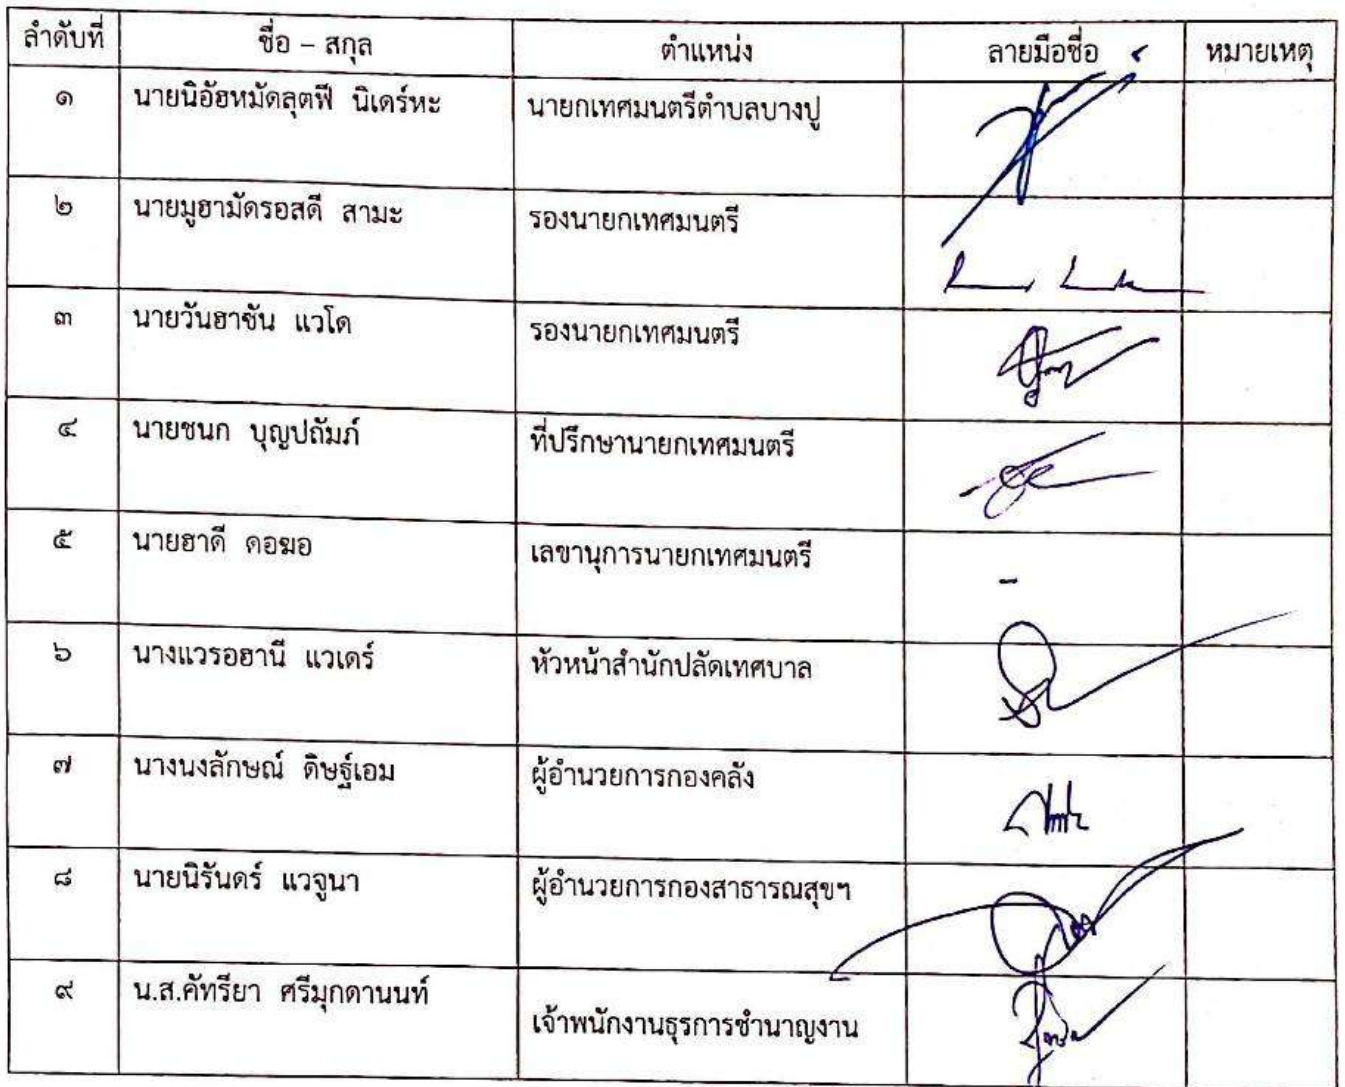 ลำดับที่ ชื่อ – สกุล ตำแหน่ง ลายมือชื่อ หมายเหตุ
๑ นายนิอัฮหมัดลุตฟี นิเดร์หะ นายกเทศมนตรีตำบลบางปู
๒ นายมูฮามัดรอสดี สามะ รองนายกเทศมนตรี
๓ นายวันฮาซัน แวโด รองนายกเทศมนตรี
๔ นายชนก บุญปถัมภ์ ที่ปรึกษานายกเทศมนตรี
๕ นายฮาดี ดอฆอ เลขานุการนายกเทศมนตรี -
๖ นางแวรอฮานี แวเดร์ หัวหน้าสำนักปลัดเทศบาล
๗ นางนงลักษณ์ ดิษฐ์เอม ผู้อำนวยการกองคลัง
๘ นายนิรันดร์ แวจูนา ผู้อำนวยการกองสาธารณสุขฯ
๙ น.ส.คัทรียา ศรีมุกดานนท์ เจ้าพนักงานธุรการชำนาญงาน